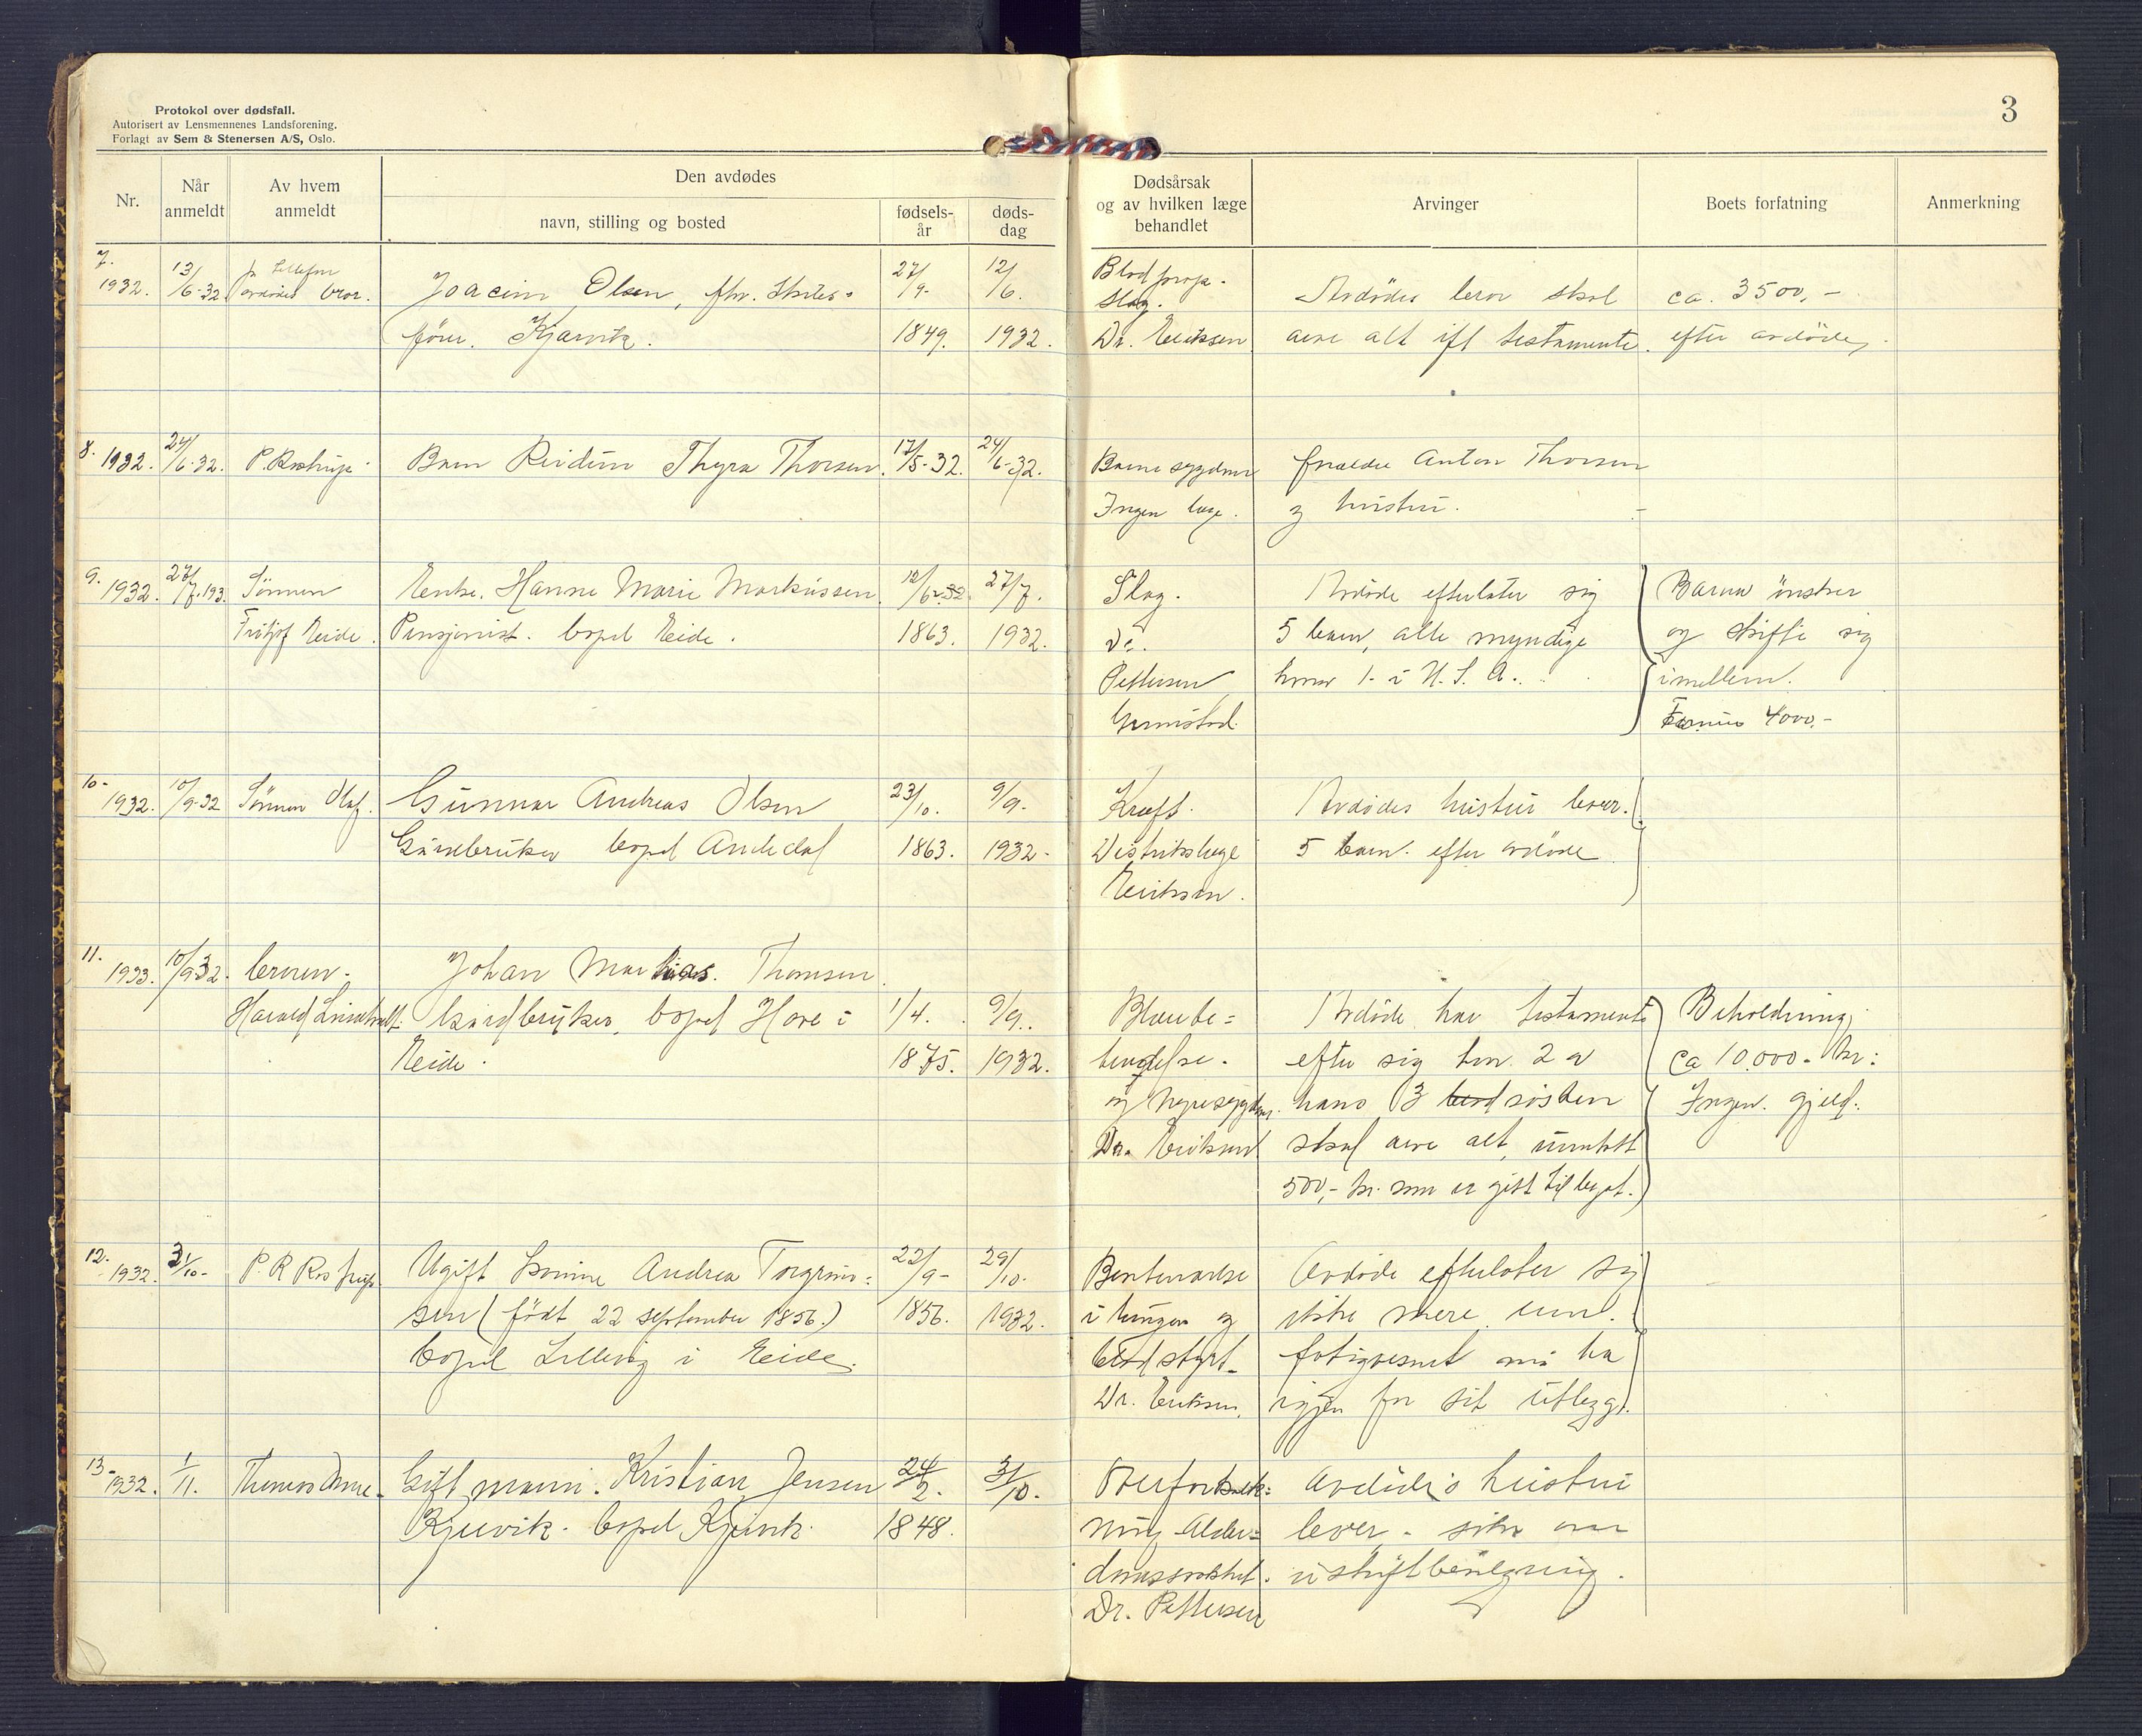 Protokol over dødsfall.
Autorisert av Lensmennenes Landsforening.
Forlagt av Sem & Stenersen A/S, Oslo.
3
Nr.
Når anmeldt
Av hvem anmeldt
Den avdødes
navn, stilling og bosted
fødsels-år
døds-dag
Dødsårsak og av hvilken læge behandlet
Arvinger
Boets forfatning
Anmerkning
7. 1932. 13/6-32 avdødes bror. Joacim Olsen, fhv. Skibs- 27/9- 12/6. Blodprop- Avdødes bror skal ca. 3500,-
fører. Kjørvik. 1849. 1932. slag.
Dr. Eriksen arve alt ift testamente. efter avdøde,
8. 1932. 24/6-32. P. Rostrup Barn Reidun Thyra Thorsen. 17/5-32. 24/6-32. Barnesygdom foreldre Anton Thorsen
Ingen læge. og hustru. -
9. 1932. 27/7.193. Sønnen Enke. Hanne Marie Markussen. 12/6-32 27/7. Slag. Avdøde efterlater sig Barna ønsker
Fritjof Eide. Pensjonist. bopel Eide. 1863. 1932. Dr. 5 barn, alle myndige og skifte sig
Pettersen hvorav 1. i U.S.A. imellem.
Grimstad. Formue 4000.-
10- 1932. 10/9-32 Sønnen Olaf. Gunnar Andreas Olsen 23/10. 9/9. Kreft. Avdødes hustru lever.
Gårdbruker bopel 1863. 1932- Distriktslæge 5 barn. efter avdøde
Eriksen.
11. 1933. 10/9-32. broren. Johan Mathias. Thomsen
Harald Gårdbruker, bopel Hove i 1/4. 9/9. Blærebe= Avdøde har testamente Beholdning
Eide. 1875. 1932. tendelse. efter sig hvor 2 av ca 10.000.- kr:
og nyresygdom. hans 3 søsken Ingen. gjeld.
Dr. Eriksen skal arve alt, unntatt
500,- kr. som er gitt til legat.
12. 1932. 31/10- P. R Rostrup Ugift kvinne Andrea Torgrim= 22/9- 29/10. Avdøde efterlater sig
sen (født 22 september 1856.) 1856. 1932. i lungen og ikke mere enn.
bopel Lillevig i Eide. fatigvesnet må ha
Dr. Eriksen. igjen for sit utlegg.
13- 1932. 1/11. Thomas Gift mann. Kristian Jensen 24/2. 31/10. Åreforkalk= Avdødes hustru
Kjervik. bopel Kjervik. 1848. ning Alder= lever, sitter
domssvakhet. uskiftbevilgning.
Dr. Pettersen